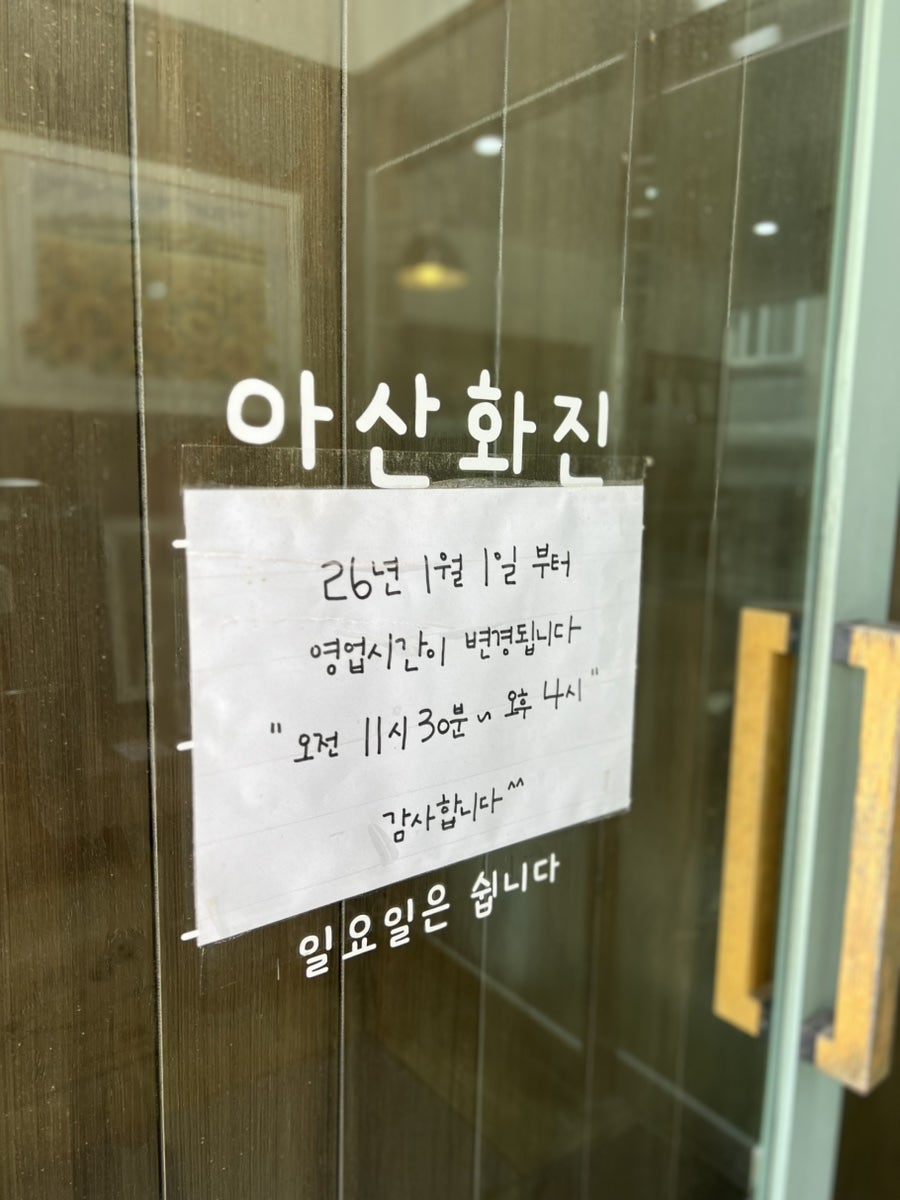 아산화진
26년 1월 1일 부터
영업시간이 변경됩니다
"오전 11시 30분 ~ 오후 4시"
감사합니다^^
일요일은 쉽니다